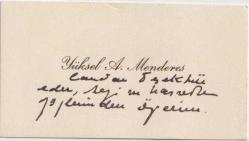 Yüksel A. Menderes
candan teşekkür
eder, sevgi ve hasretle
gözlerinden öperim.